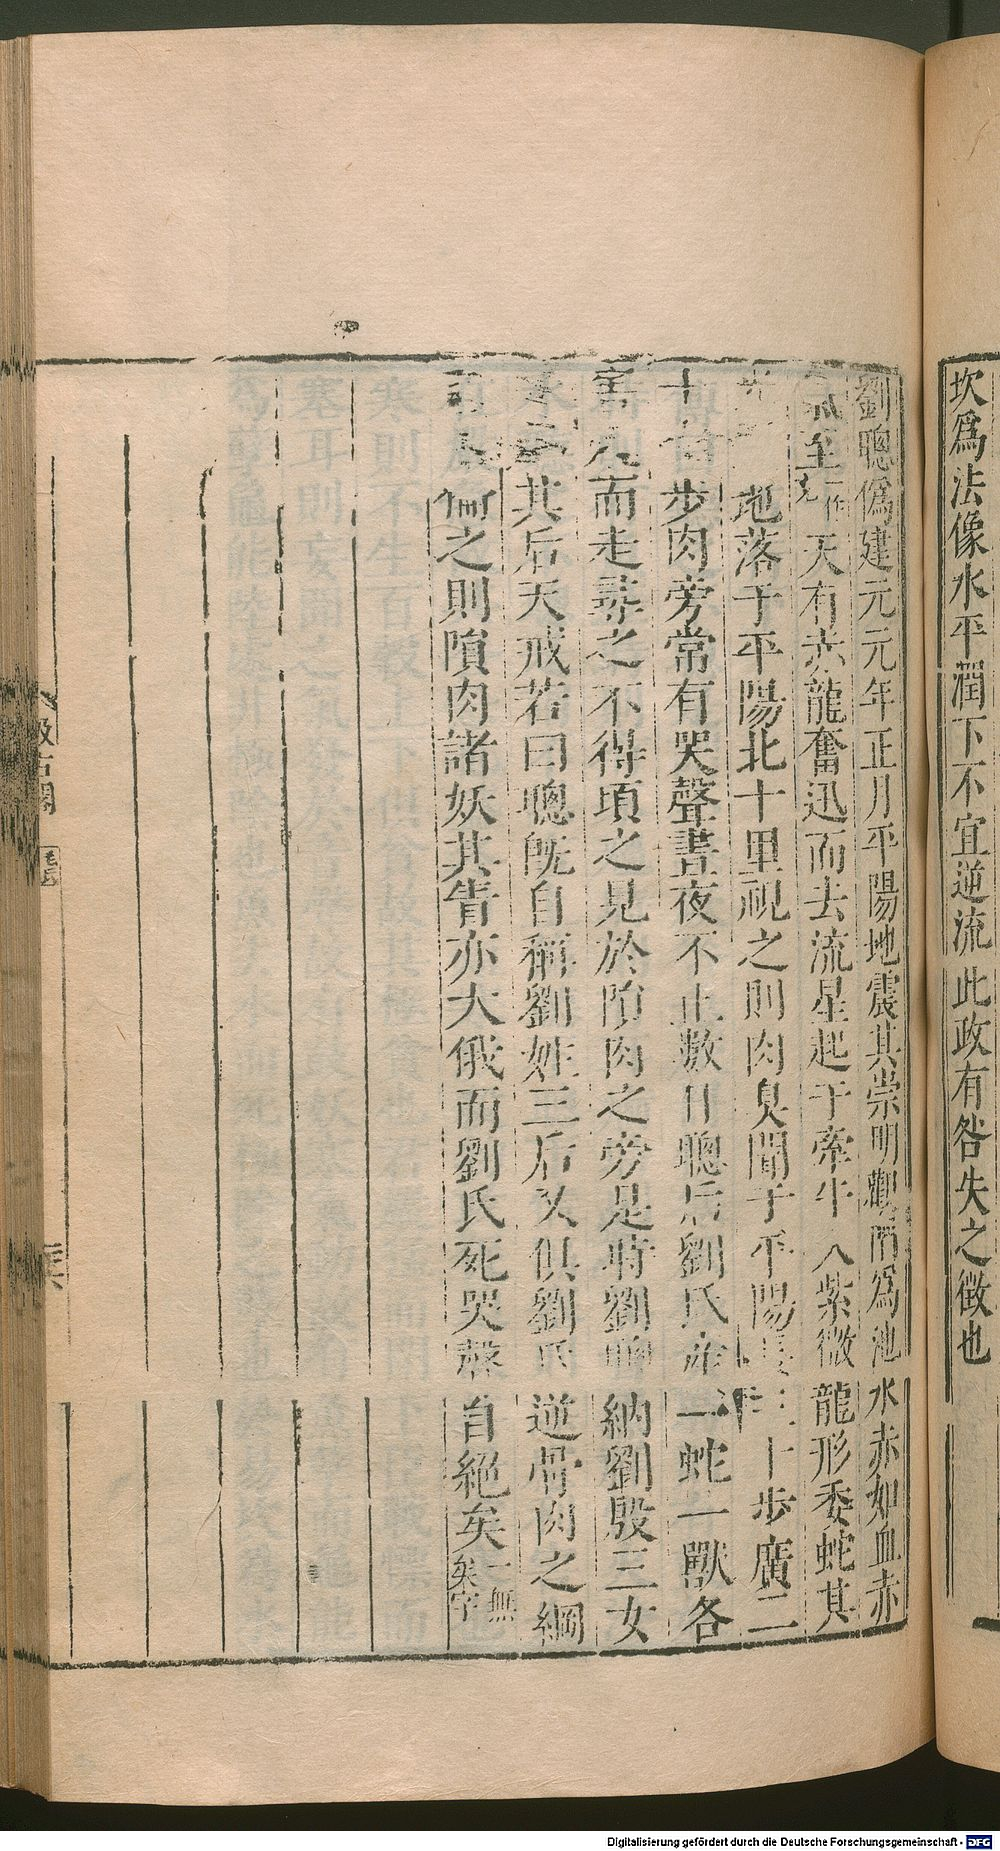 坎爲法像水平潤下不宜逆流此政有咎失之徵也
劉聰僞建元元年正月平陽地震其崇明觀陷爲池水赤如血赤
氣至一作天有赤龍奮迅而去流星起于牽牛入紫微龍形委蛇其
光地落于平陽北十里視之則肉臭聞于平陽長三十步廣二
十七步肉旁常有哭聲晝夜不止數日聰后劉氏產一蛇一獸各
害人而走尋之不得頃之見於隕肉之旁是時劉聰納劉殷三女
爲其后天戒若曰聰旣自稱劉姓三后又俱劉氏逆骨肉之綱
亂人倫之則隕肉諸妖其眚亦大俄而劉氏死哭聲自絕矣一無矣字
汲古閣
毛氏
Digitalisierung gefördert durch die Deutsche Forschungsgemeinschaft - DFG